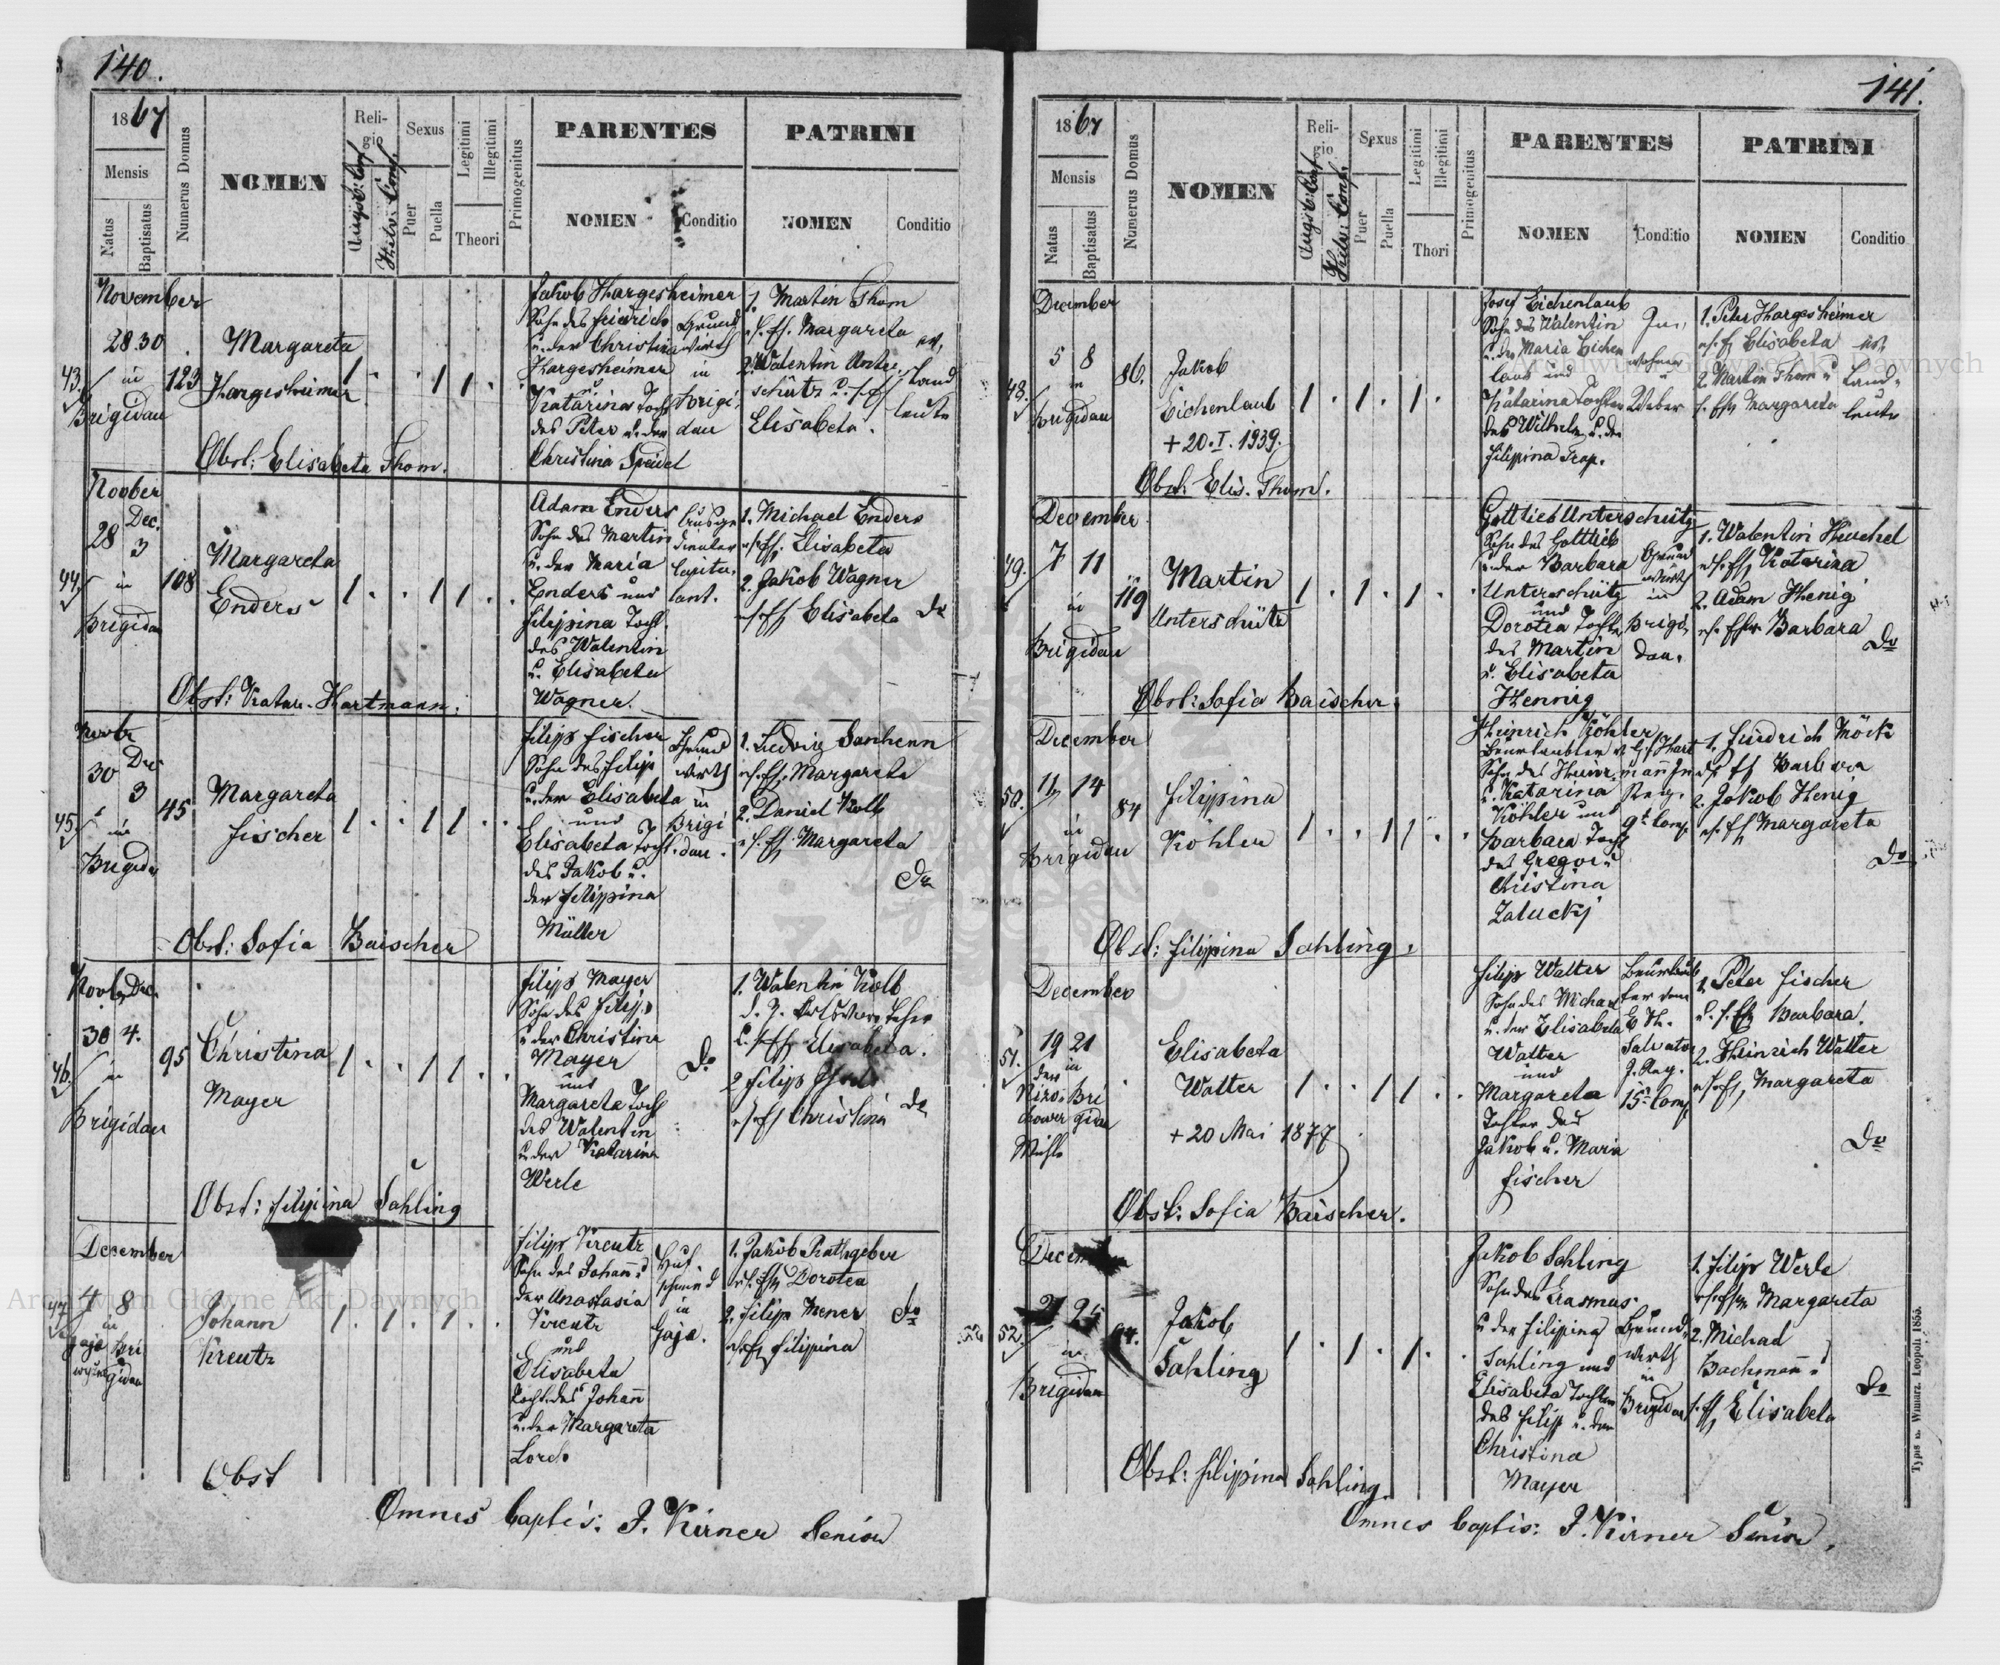 140.
1867
Mensis
Natus
Baptisatus
Numerus Domus
NOMEN
Religio
Augsb: Conf.
Helv: Conf.
Sexus
Puer
Puella
Legitimi
Illegitimi
Theori
Primogenitus
PARENTES
NOMEN
Conditio
PATRINI
NOMEN
Conditio
November
43.
28 30
in
Brigidau
123
Margareta
Hargesheimer
1 . . 1 1 .
Jakob Hargesheimer
Sohn des Friedrich
u. der Christina
Hargesheimer
u.
Katarina Toch
des Peter u. der
Christina Speidel
Grund
wirth
in
Brigi
dau
1. Martin Thom
u. s. Eh. Margareta
2. Valentin Unter
schütz u. s. Eh
Elisabeta.
ev.
Land
leute
Obst: Elisabeta Thom.
Novber
Dec.
44.
28 3
in
Brigidau
108
Margareta
Enders
1 . . 1 1 . .
Adam Enders
Sohn des Martin
u. der Maria
Enders und
Filippina Toch.
des Valentin
u. Elisabeta
Wagner.
ausge
dienter
Capitu.
lant.
1. Michael Enders
u. s. Eh. Elisabeta
2. Jakob Wagner
u. s. Eh Elisabeta
do
Obst: Katar. Hartmann.
Novbr
Dec
45.
30 3
in
Brigida
45
Margareta
Fischer
1 . . 1 1 . .
Filipp Fischer
Sohn des Filip
u. der Elisabeta
und
Elisabeta Toch.
des Jakob u.
der Filippina
Müller
Grund
wirth
in
Brigi
dau.
1. Ludwig Sanhenn
u. s. Eh. Margareta
2. Daniel Kolb
u. s. Eh. Margareta
do
Obst: Sofia Baischer
Novb. Dec.
46.
30 4.
in
Brigidau
95
Christina
Mayer
1 . . 1 1 . .
Filipp Mayer
Sohn des Filipp
u. der Christina
Mayer
und
Margareta Toch
des Valentin
u. der Katarina
Werle
do
1. Valentin Kolb
u. s. Eh Elisabeta.
2 Filipp
u. s. Eh Christina
do
Obst: Filipina Sahling
December
47.
4 8
in
Gaja Bri
gidau
Johann
Kreutz
1 . 1 . 1 . .
Filipp Kreutz
Sohn des Johann u
der Anastasia
Kreutz
und
Elisabeta
Tocht. des Johann
u. der Margareta
Lorch
Huf
schmied
in
Gaja.
1. Jakob Rathgeber
u. s. Eh Dorotea
2. Filipp Mener
u. s. Eh Filippina
do
Obst
Omnes baptis: J. Kirner Senior
141.
1867
Mensis
Natus
Baptisatus
Numerus Domus
NOMEN
Religio
Augsb: Conf.
Helv: Conf.
Sexus
Puer
Puella
Legitimi
Illegitimi
Thori
Primogenitus
PARENTES
NOMEN
Conditio
PATRINI
NOMEN
Conditio
December
48.
5 8
in
Brigidau
86.
Jakob
Eichenlaub
+ 20. I. 1939.
1 . 1 . 1 .
Josef Eichenlaub
Sohn des Valentin
u. der Maria Eichen
laub und
Katarina Tochter
des Wilhelm u. der
Filippina Trap.
In
wohner
u
Weber
1. Peter Hargesheimer
u. s. E. Elisabeta
2. Martin Thom u
s. Eh. Margareta
ev.
Land-
leute
Obst: Elis. Thom.
December
49.
7 11
in
Brigidau
119
Martin
Unterschütz
1 . 1 . 1 . .
Gottlieb Unterschütz
Sohn des Gottlieb
u. der Barbara
Unterschütz
und
Dorotea Tocht.
des Martin
u. Elisabeta
Hennig
Grund
wirth
in
Brigi
dau.
1. Valentin Heuchel
u. s. Eh Katarina
2. Adam Henig
u. s. Eh Barbara
do
Obst: Sofia Baischer.
December
50.
11 14
in
Brigidau
84
Filippina
Köhler
1 . . 1 1 . .
Heinrich Köhler
Beurlaubter v. G. Hart
Sohn des Heinr.
u. Katarina
Köhler und
Barbara Toch
des Gregor u
Christina
Zalucky
mann In
Reg.
9t Comp.
1. Friedrich Möck
u. s. Eh Barbara
2. Jakob Henig
u. s. Eh Margareta
do
Obst: Filippina Sahling.
December
51.
19 21
in
der
Bri
gidau
Mühle
Elisabeta
Walter
+ 20 Mai 1877
1 . . 1 1 . .
Filipp Walter
Sohn des Michael
u. der Elisabeta
Walter
und
Margareta
Tochter des
Jakob u. Maria
Fischer
Beurlaub
ter vom
E. H.
Salvator
J. Reg.
15t Comp
1. Peter Fischer
u. s. Eh Barbara.
2. Heinrich Walter
u. s. Eh. Margareta
do
Obst: Sofia Baischer.
December
52.
21 25
in
Brigidau
94.
Jakob
Sahling
1 . 1 . 1 . .
Jakob Sahling
Sohn des Erasmus
u der Filippina
Sahling und
Elisabeta Tochter
des Filipp u. der
Christina
Mayer
Grund
wirth
in
Brigidau
1. Filipp Werle
u. s. Eh Margareta
2. Michael
Bachmann u
s. Eh Elisabeta
do
Obst: Filippina Sahling.
Omnes baptis: J. Kirner Senior.
Typis u. Winiarz. Leopoli 1855.
Archiwum Główne Akt Dawnych
Archiwum Główne Akt Dawnych